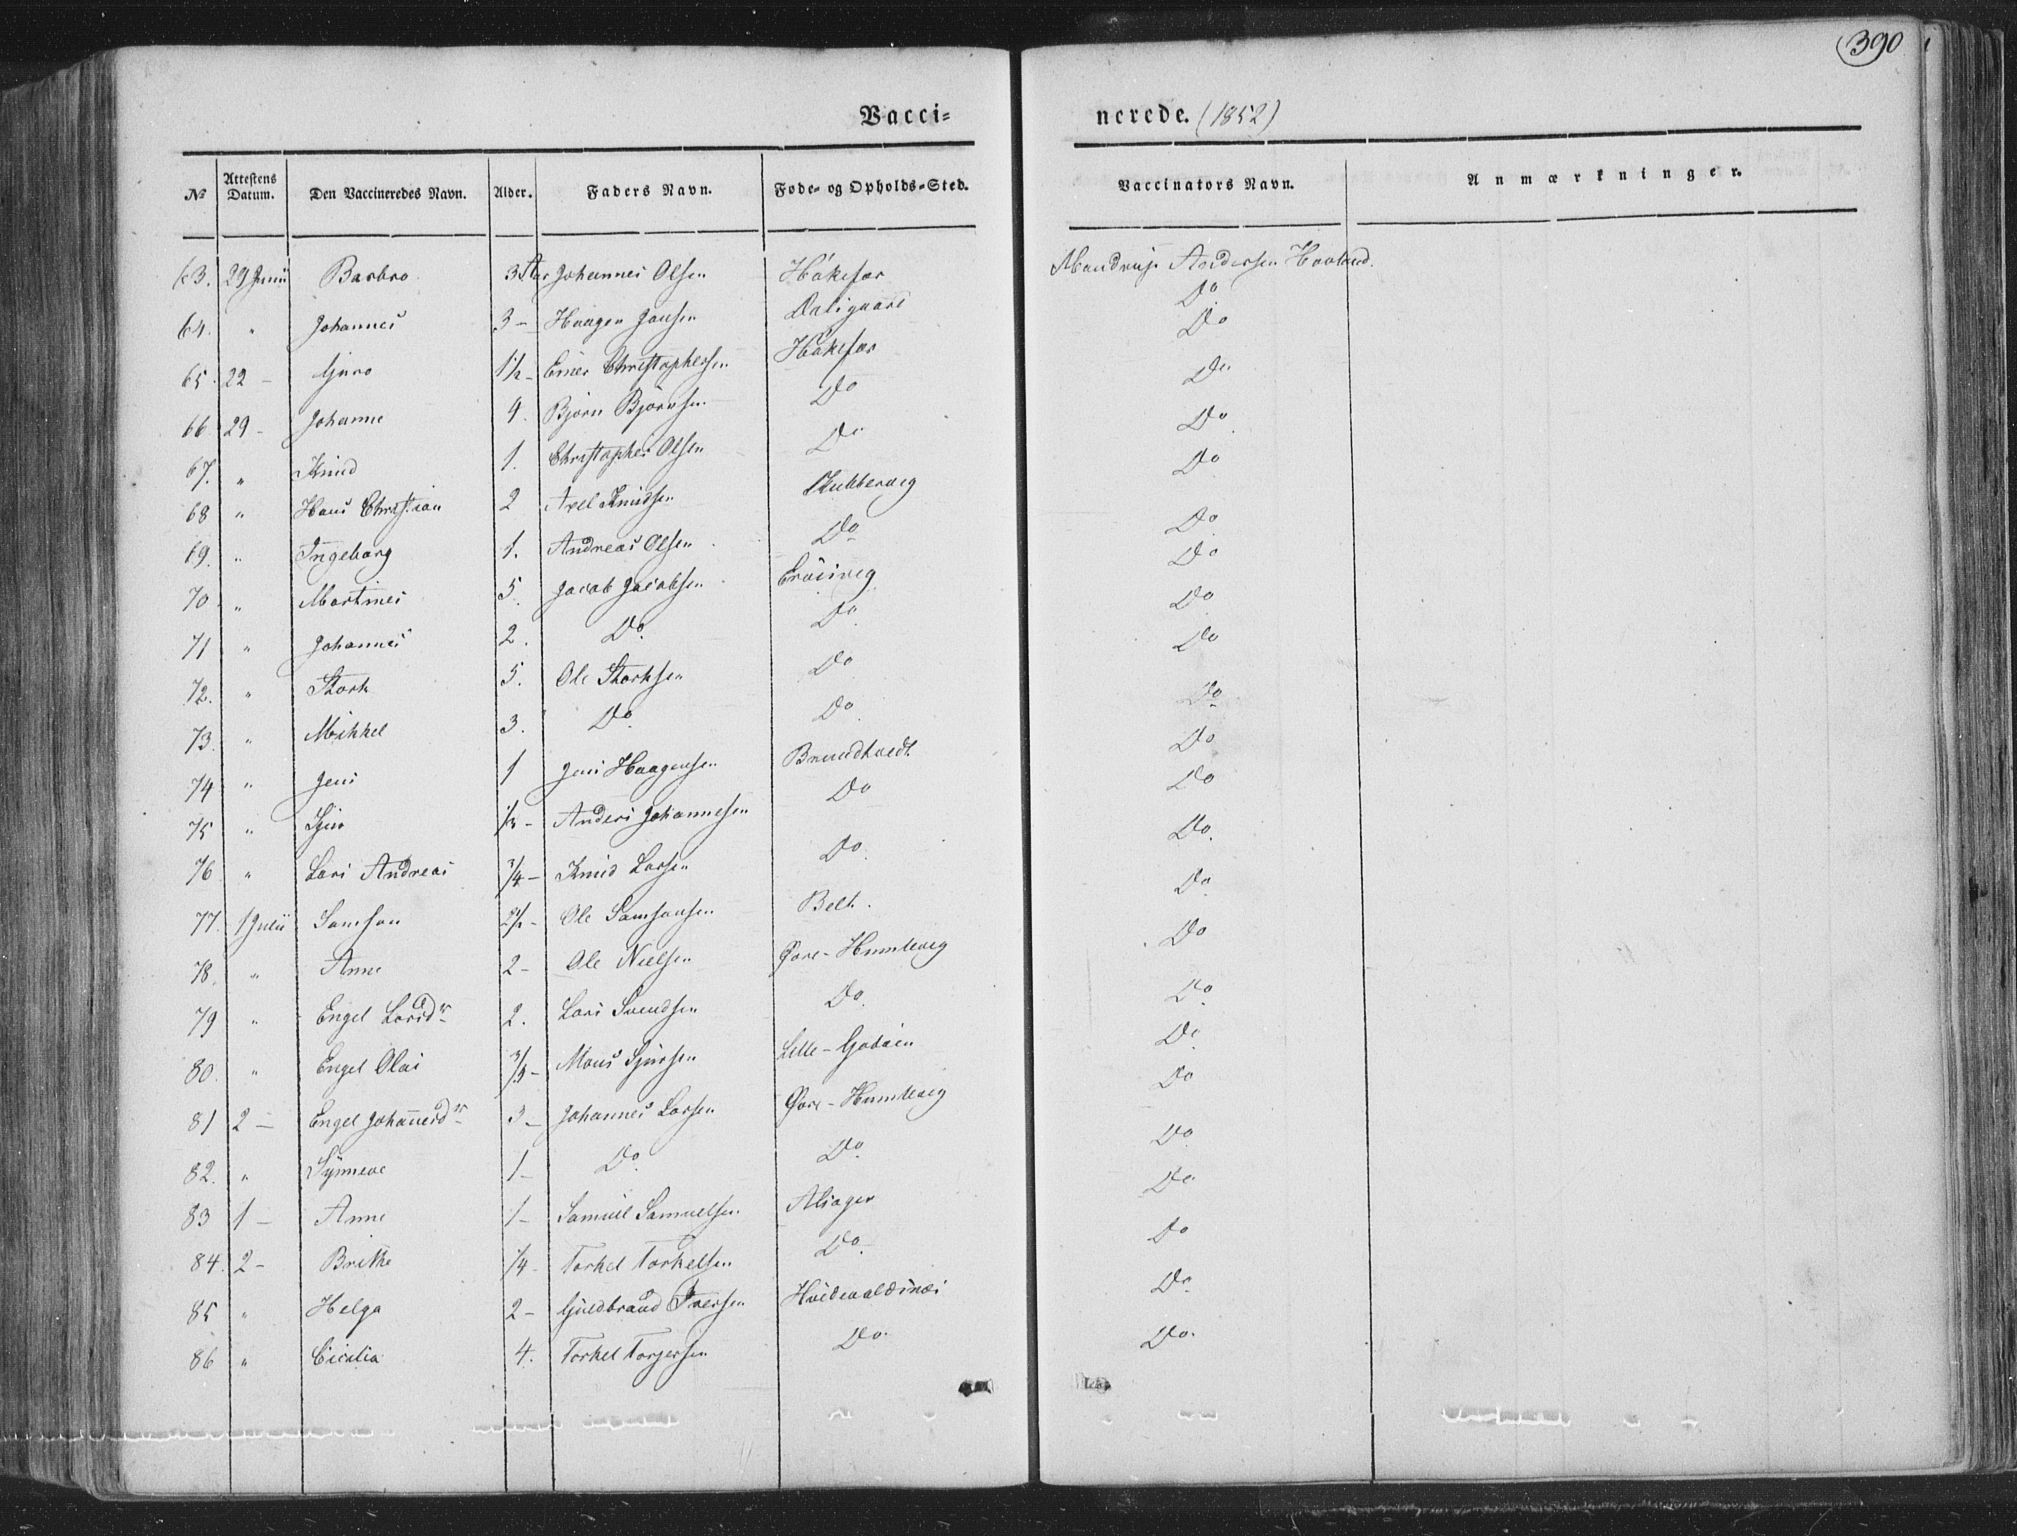 390
Vacci- nerede. (1852)
№ Attestens Datum. Den Vaccineredes Navn. Alder. Faders Navn. Føde- og Opholds-Sted. Vaccinators Navn. Anmærkninger.
63. 29 Junii Barbro 3 Aar Johannes Olsen Håkefær Mandrup Andersen Hovland.
64. " Johannes 3 - Haagen Jansen Dalsgaard Do
65. 22 - Guro 1/2 - Einer Christophersen Håkefær Do
66 29 - Johanne 4. Bjørn Bjørnsen Do Do
67. " Knud 1. Christopher Olsen Do Do
68 " Hans Christian 2 Axel Knudsen Do
69. " Ingeborg 1. Andreas Olsen Do Do
70 " Martines 5. Jacob Jacobsen Do
71 " Johannes 2. Do Do Do
72. " Stork 5. Ole Storksen Do Do
73. " Mikkel 3. Do Do Do
74 " Jens 1 Jens Haagensen Brundtvedt Do
75 " Sjur Anders Johannesen Do Do
76 " Lars Andreas 3/4 - Knud Larsen Do Do
77. 1 Julii Samson 2 1/2 - Ole Samsonsen Belt. Do
78. " Anne 2 - Ole Nielsen Øvre-Humlevig Do
79 " Engel Larsdr 2. Lars Svendsen Do Do
80. " Engel Olai Mons Sjursen Lille-Godøen Do
81 2 - Engel Johannesdr 3 - Johannes Larsen Øvre-Humlevig Do
82. " Synneve 1 - Do Do Do
83 1 - Anne 1 - Samuel Samuelsen Alsager Do
84. 2 - Brithe 1/4 - Torkel Torkelsen Do Do
85 " Helga 2 - Guldbrand Iversen Hvidevaldsnæs Do
86 " Cicilia 4. Torkel Torgersen Do Do